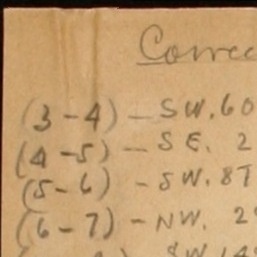 Correc
(3-4) - SW. 60
(4-5) - SE. 2
(5-6) - SW. 87
(6-7) - NW. 2
SW